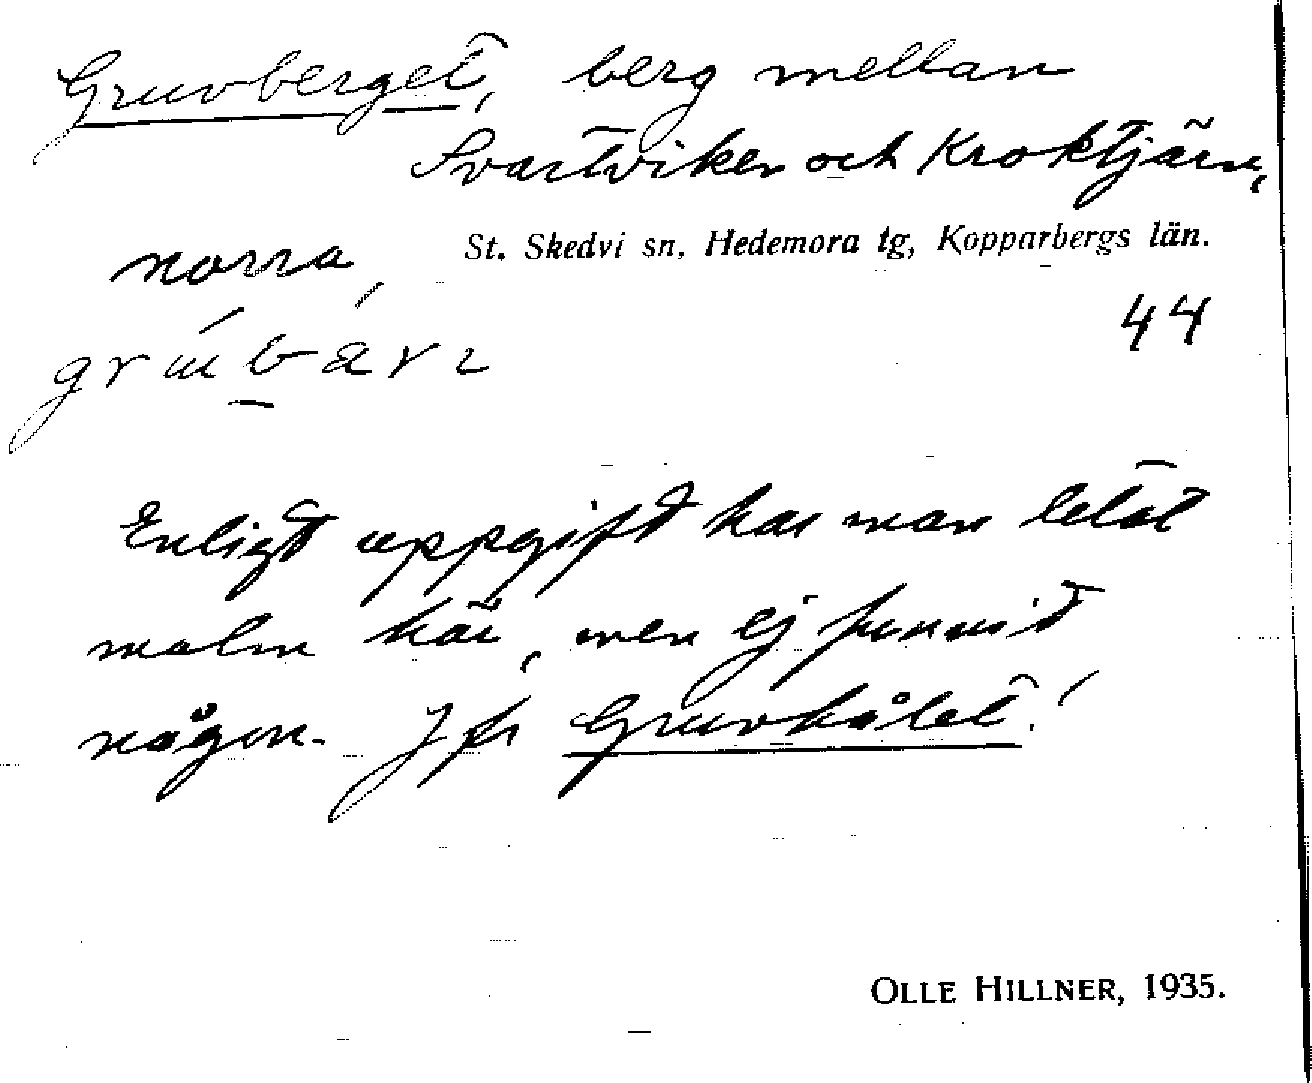 Gruvberget, berg mellan
Svartviken och Kroktjärn,
norra,
St. Skedvi sn, Hedemora tg, Kopparbergs län.
44
Enligt uppgift har man letat
malm här, men ej funnit
någon. Jfr Gruvhålet!
OLLE HILLNER, 1935.